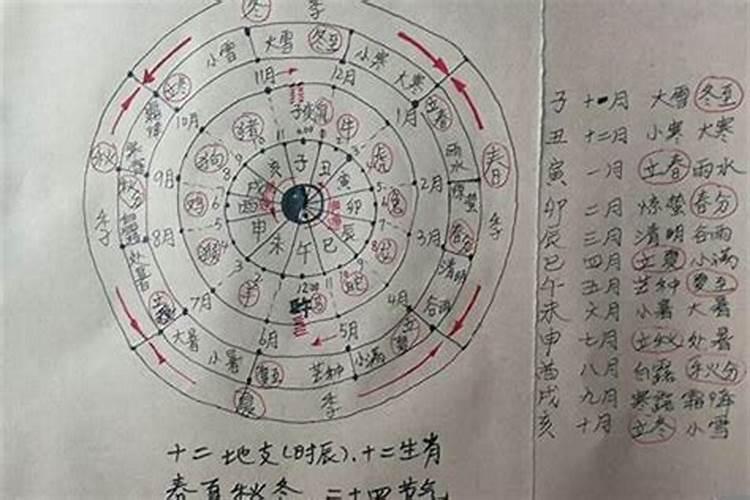 冬 季
小雪 大雪 冬至 小寒 大寒
立冬 11月 12月 立春
10月 子 1月
猪 鼠 牛
秋 狗 亥 子 丑 虎 雨水 春
9月 戌 寅 2月
秋分 鸡 酉 卯 兔 惊蛰
季 8月 申 辰 3月 春分 季
处暑 猴 未 午 巳 清明
立秋 7月 羊 蛇 4月 谷雨
大暑 6月 5月 立夏
小暑 夏至 芒种 小满
夏 季
子 十一月 大雪 冬至
丑 十二月 小寒 大寒
寅 一月 立春 雨水
卯 二月 惊蛰 春分
辰 三月 清明 谷雨
巳 四月 立夏 小满
午 五月 芒种 夏至
未 六月 小暑 大暑
申 七月 立秋 处暑
酉 八月 白露 秋分
戌 九月 寒露 霜降
亥 十月 立冬 小雪
十二地支(时辰)、十二生肖
春夏秋冬 二十四节气